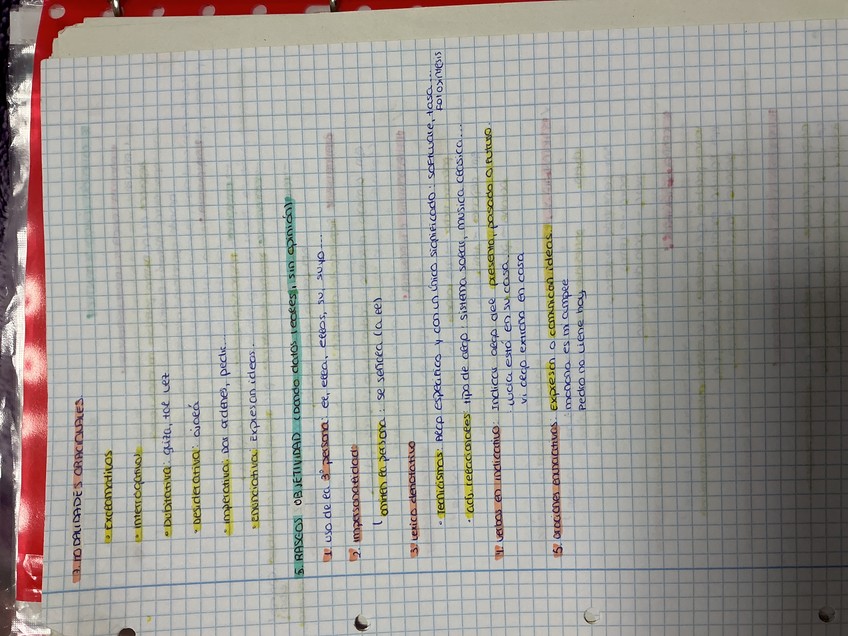 7. MODALIDADES ORACIONALES
· Exclamativas
· Interrogativa
· Dubitativa: quiza, tal vez
· Desiderativa: ojalá
· Imperativa: Dar ordenes, pedir...
· enunciativa: Expresan ideas.
5. RASGOS OBJETIVIDAD (cuando datos reales, sin opinión)
1. uso de la 3º persona: el, ella, ellos, su, suyo...
2. Impersonalidad
omiten la persona: se señala (la ee)
3. Lexico denotativo
· Tecnicismos: Algo especifico y con un único significado: software, tasa...
Fotosíntesis
· adj relacionales: tipo de algo sistema solar, musica clasica...
4. verbos en indicativo: Indicar algo del presente, pasado o futuro.
Lucia está en su casa
Vi algo extraño en casa
5. oraciones enunciativas: Expresan o comunican ideas.
: mañana es mi cumple
Pedro no viene hoy